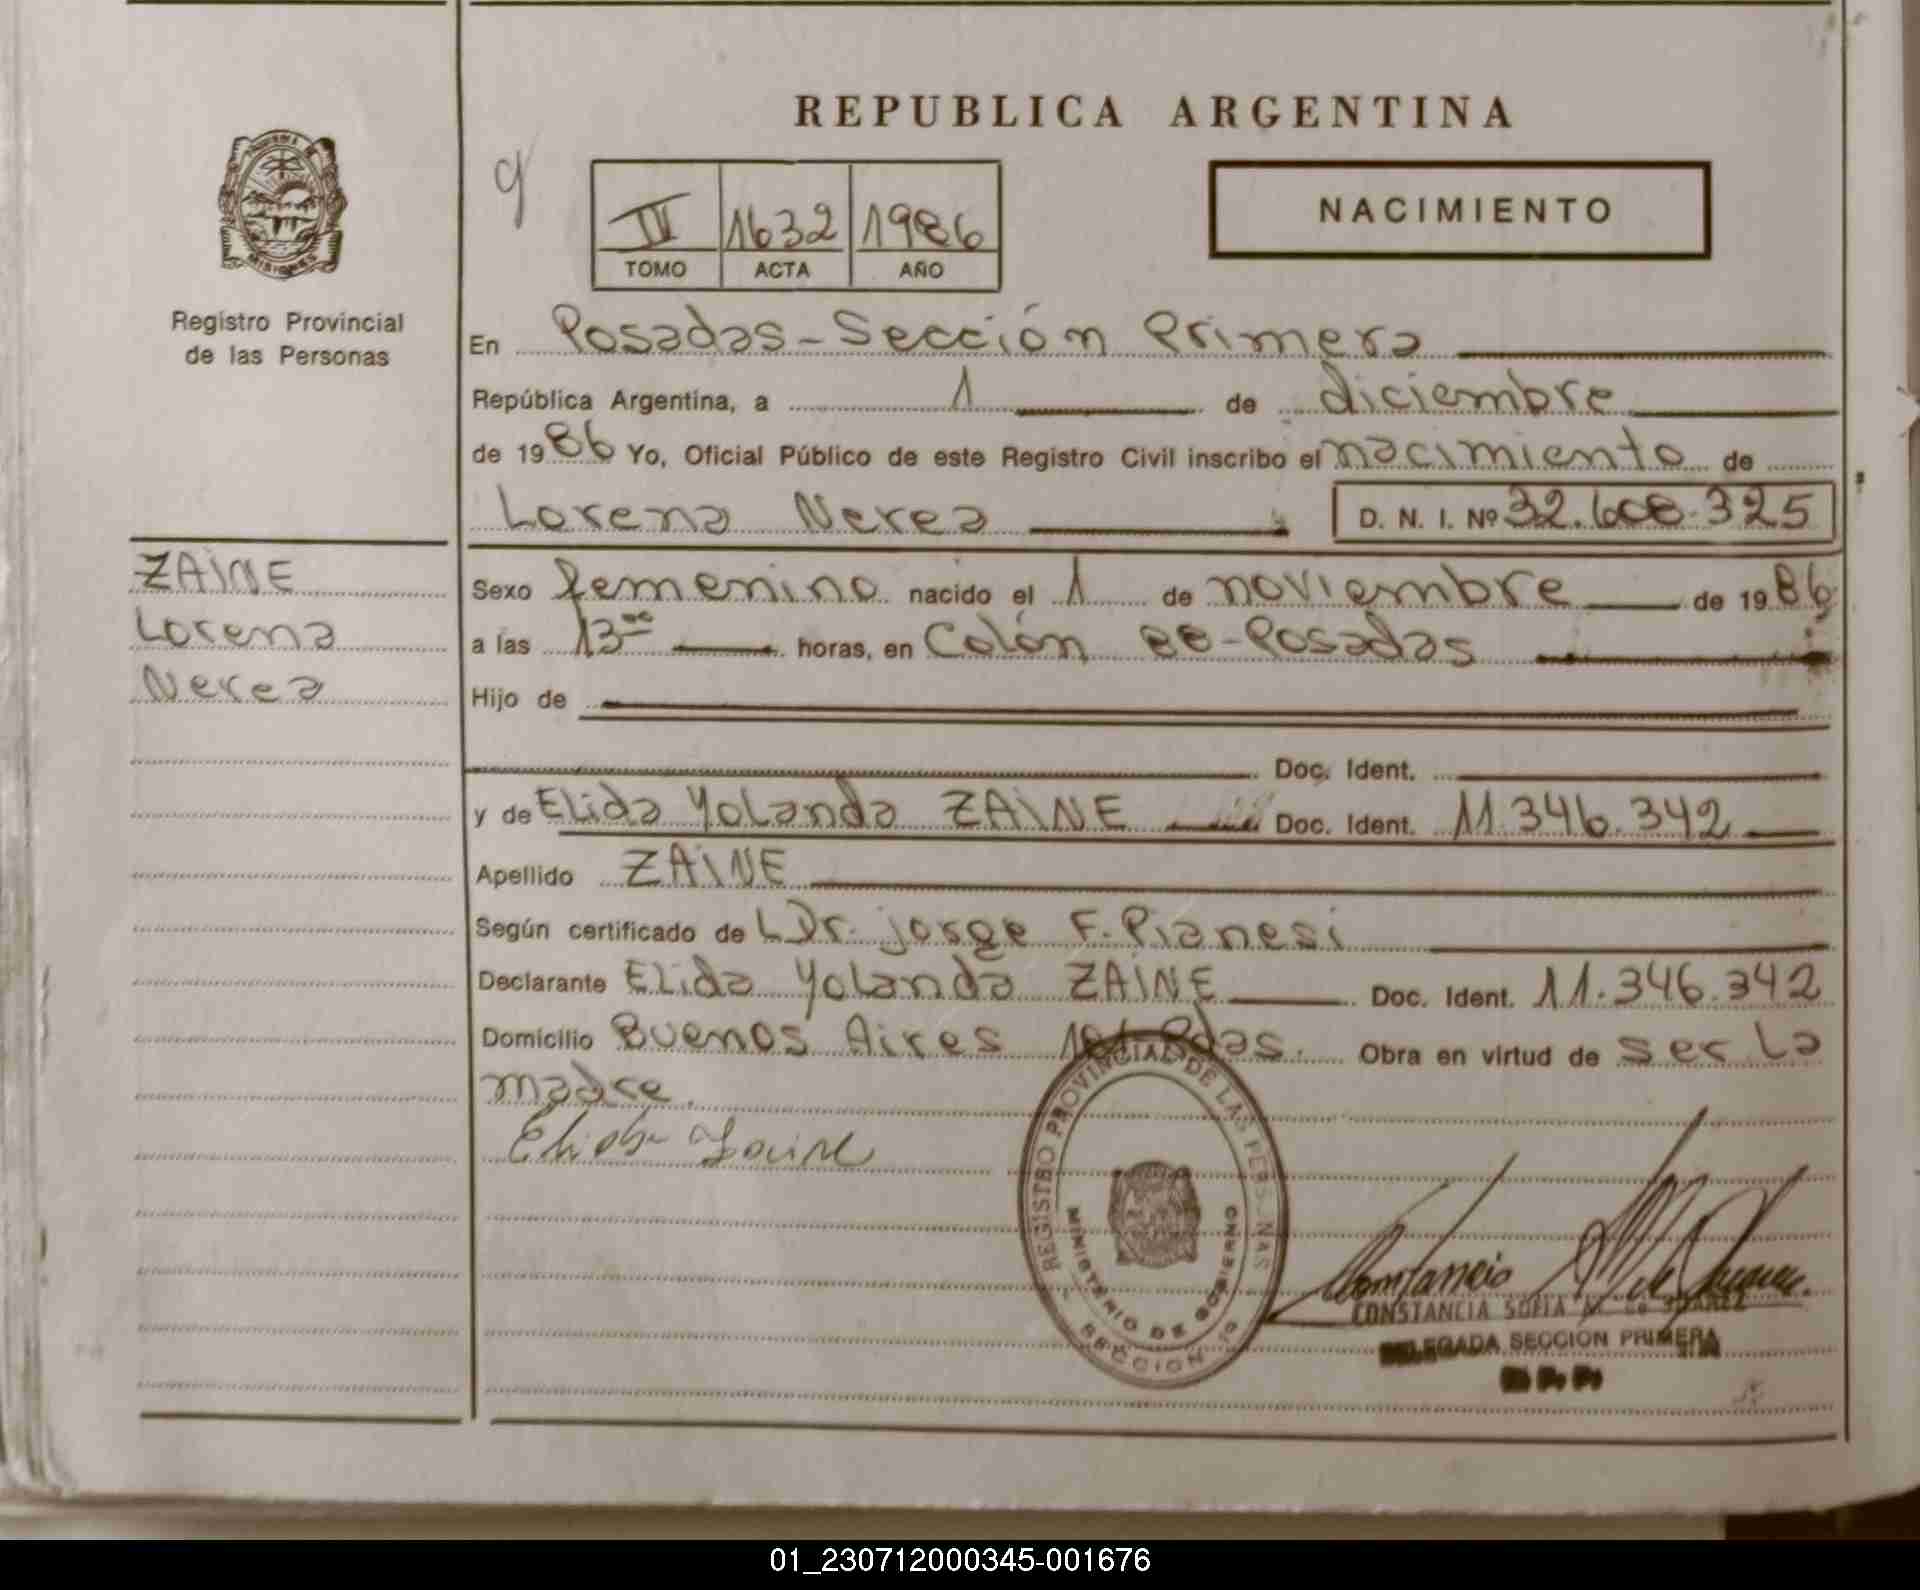 REPUBLICA ARGENTINA
MISIONES
Registro Provincial
de las Personas
IV 1632 1986
TOMO ACTA AÑO
NACIMIENTO
En Posadas-Sección Primera
República Argentina, a 1 de diciembre
de 1986 Yo, Oficial Público de este Registro Civil inscribo el nacimiento de
Lorena Nerea D. N. I. Nº 32.608.325
ZAINE
Lorena
Nerea
Sexo femenino nacido el 1 de noviembre de 1986
a las 13 00 horas, en Colón - Posadas
Hijo de
Doc. Ident.
y de Elida Yolanda ZAINE Doc. Ident. 11.346.342
Apellido ZAINE
Según certificado de Dr. Jorge F. Pianesi
Declarante Elida Yolanda ZAINE Doc. Ident. 11.346.342
Domicilio Buenos Aires Pdas. Obra en virtud de ser la
madre.
Elida Zaine
REGISTRO PROVINCIAL DE LAS PERSONAS
MINISTERIO DE GOBIERNO
SECCION 1a
CONSTANCIA SOFIA M. de SUAREZ
DELEGADA SECCION PRIMERA
01_230712000345-001676